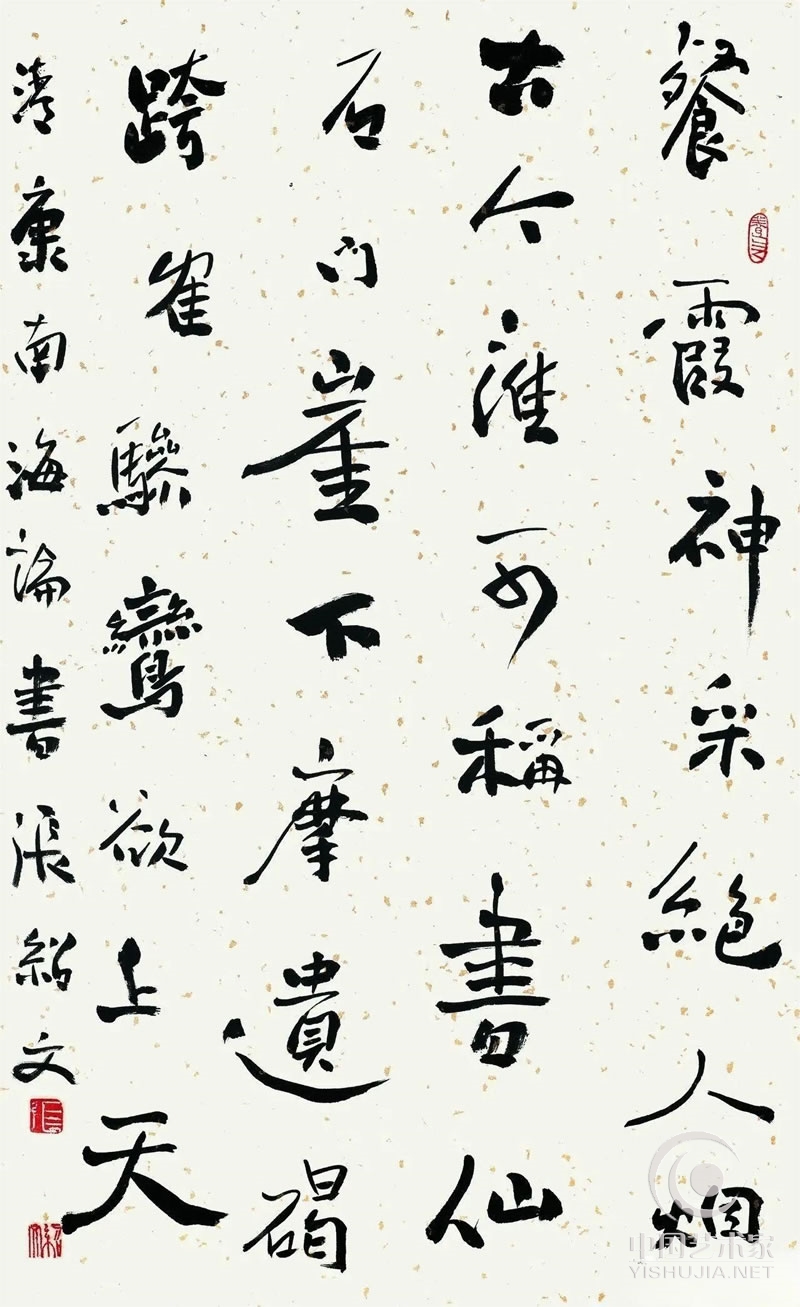 餐霞神采絕人烟
古今誰可稱書仙
石門崖下摩遺碣
跨隺驂鸞欲上天
清康南海論書張紹文
中国艺术家
YISHUJIA.NET